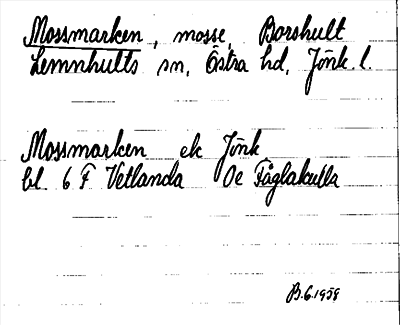 Mossmarken, mosse, Borshult
Lemnhults sn, Östra hd, Jönk. l.
Mossmarken ek Jönk
bl. 6 F Vetlanda 0e Fåglakulla
B.6.1958